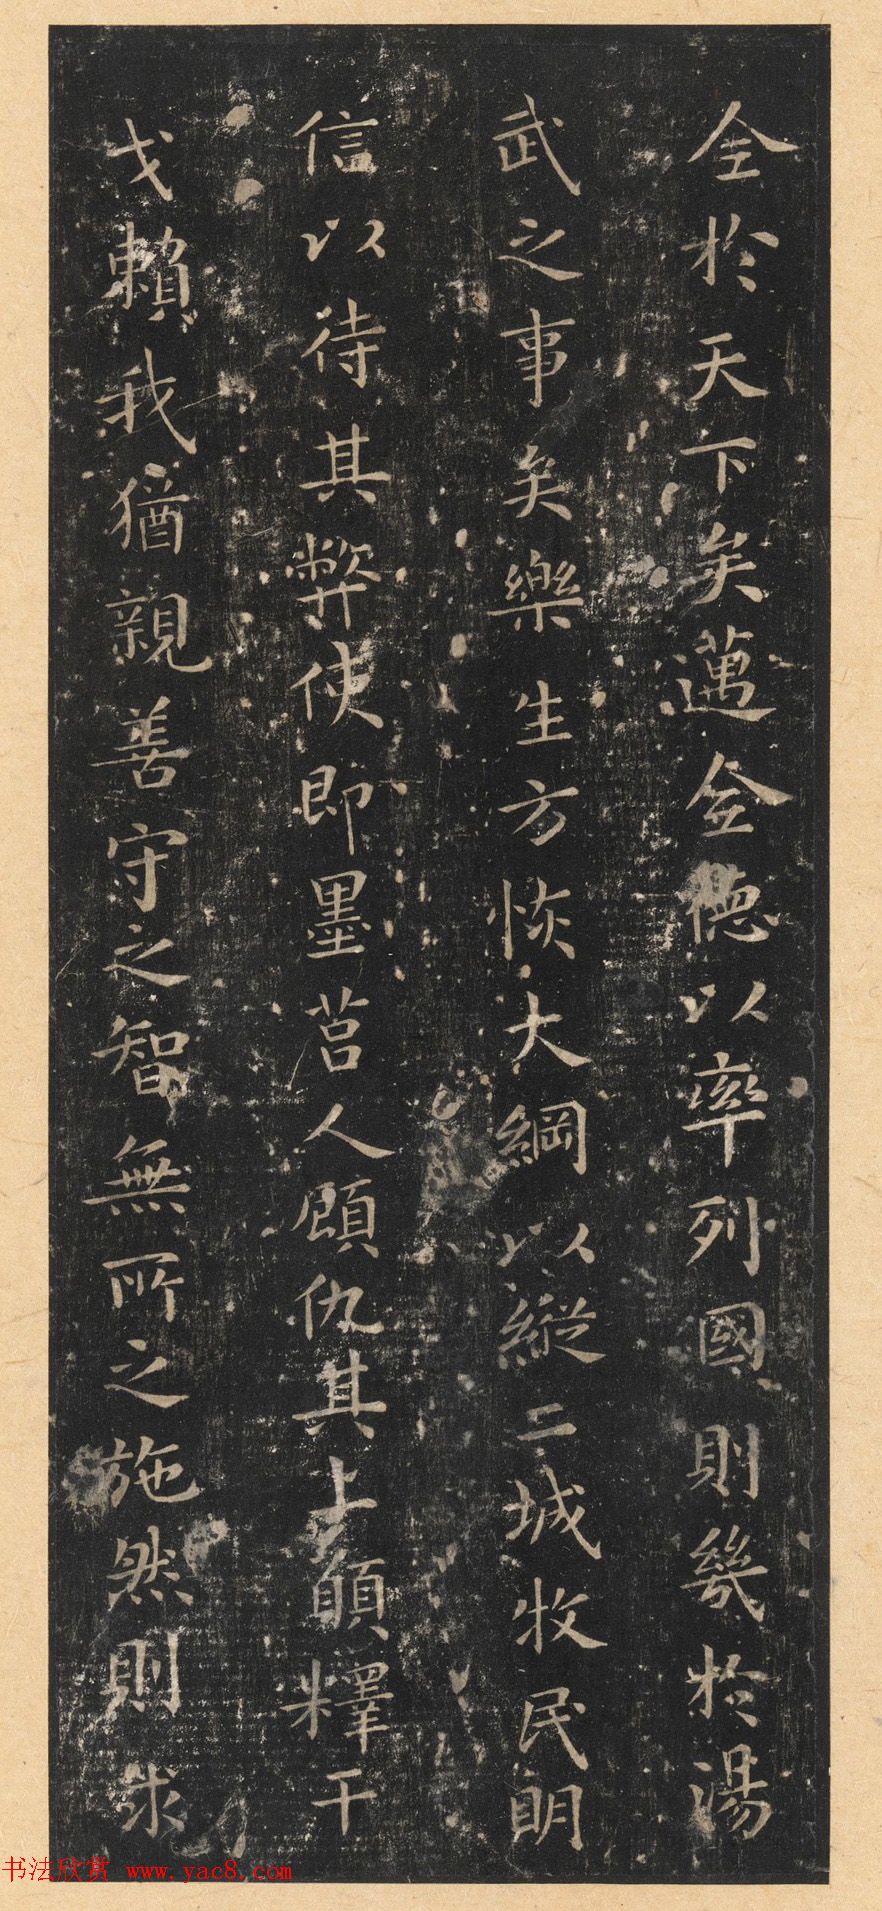 全於天下矣邁全德以率列國則幾於湯
武之事矣樂生方恢大綱以縱二城牧民明
信以待其弊使即墨莒人顧仇其上願釋干
戈賴我猶親善守之智無所之施然則求
书法欣赏 www.yac8.com